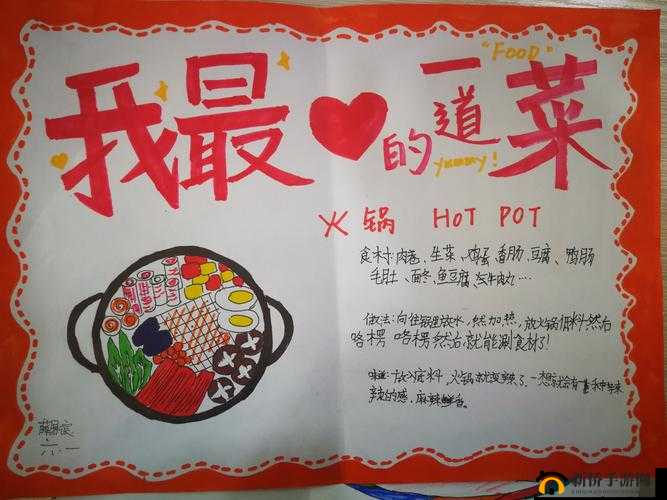 "FOOD"
我最❤的一道菜
yummy!
火锅 HOT POT
食材:肉卷、生菜、鸡蛋、香肠、豆腐、鸭肠
毛肚、面、鱼豆腐、牛肉丸…
做法:向往锅里放水,然加热,放火锅佰料然后
咯楞 咯楞然后就能涮食材了!
味道:放入底料,火锅就变辣了.一想就会有
辣的感,麻辣鲜香。
六.一
新侨手游网